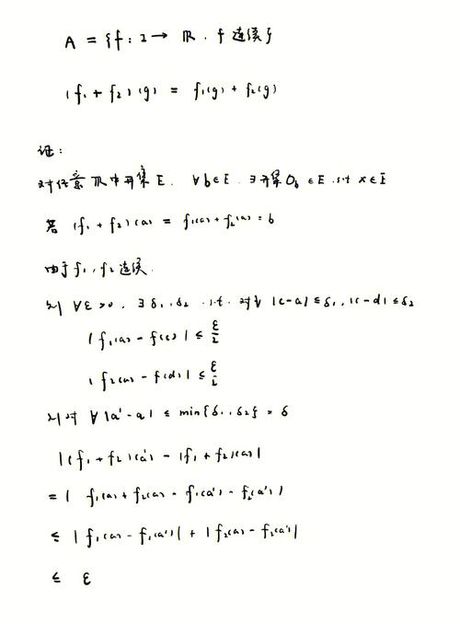 A = {f : I → ℝ . f 连续}
(f₁ + f₂)(g) = f₁(g) + f₂(g)
证:
对任意 ℝ中开集 E. ∀b∈E. ∃开集 O_b ∈ E .s.t x∈E
若 (f₁ + f₂)(a) = f₁(a) + f₂(a) = b
由于 f₁, f₂ 连续.
则 ∀ε>0 . ∃ δ₁, δ₂ .s.t. 对∀ |c-a| ≤ δ₁, |c-d| ≤ δ₂
| f₁(a) - f(c) | ≤ ε/2
| f₂(a) - f(d) | ≤ ε/2
则对 ∀ |a'-a| ≤ min{δ₁, δ₂} = δ
|(f₁ + f₂)(a') - (f₁ + f₂)(a)|
= | f₁(a) + f₂(a) - f₁(a') - f₂(a') |
≤ | f₁(a) - f₁(a') | + | f₂(a) - f₂(a') |
≤ ε